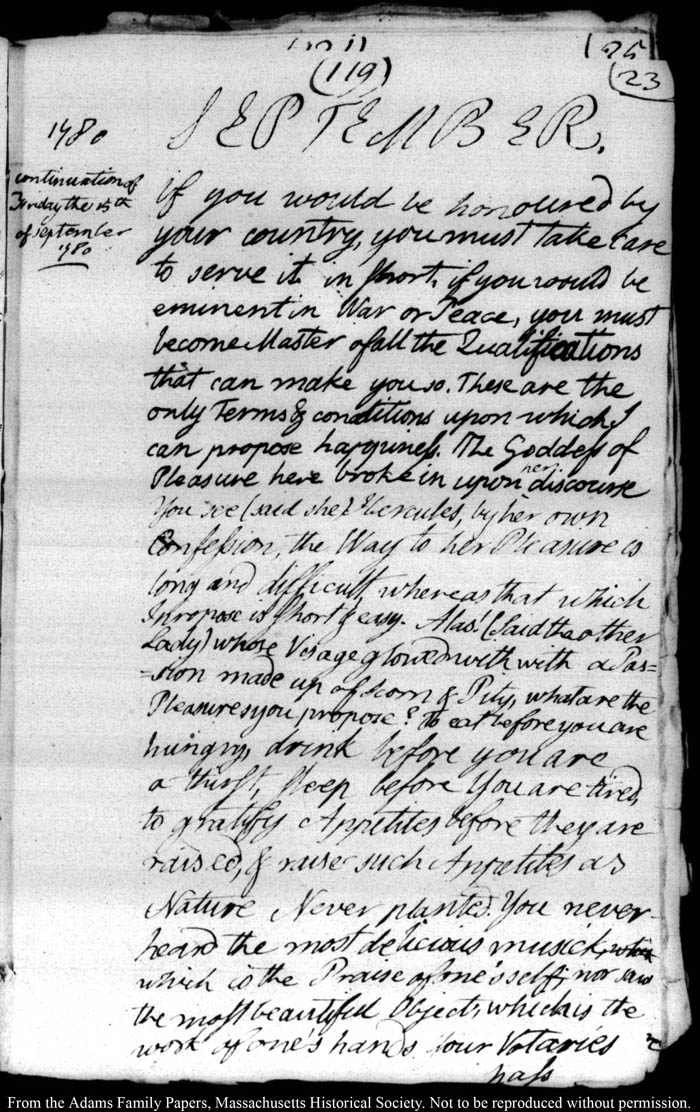 (119)
23
SEPTEMBER.
1780
continuation of
the 15th
of September
1780
if you would be honoured by
your country, you must take care
to serve it. in short, if you would be
eminent in War or Peace, you must
become Master of all the Qualifications
that can make you so. These are the
only Terms & conditions upon which I
can propose happiness. The Goddess of
Pleasure here broke in upon her discourse
You see (said she) Hercules, by her own
Confession, the Way to her Pleasure is
long and difficult, whereas that which
I propose is short & easy. Alas! (Said the other
Lady) whose Visage glowed with with a Pas=
=sion made up of Scorn & Pity, what are the
Pleasures you propose? To eat before you are
hungry, drink before you are
a thirst, sleep before You are tired,
to gratify Appetites before they are
raised, & raise such Appetites as
Nature Never planted. You never
heard the most delicious musick,
which is the Praise of one's self; nor saw
the most beautiful Object, which is the
work of one's hands. Your Votaries
pass
From the Adams Family Papers, Massachusetts Historical Society. Not to be reproduced without permission.